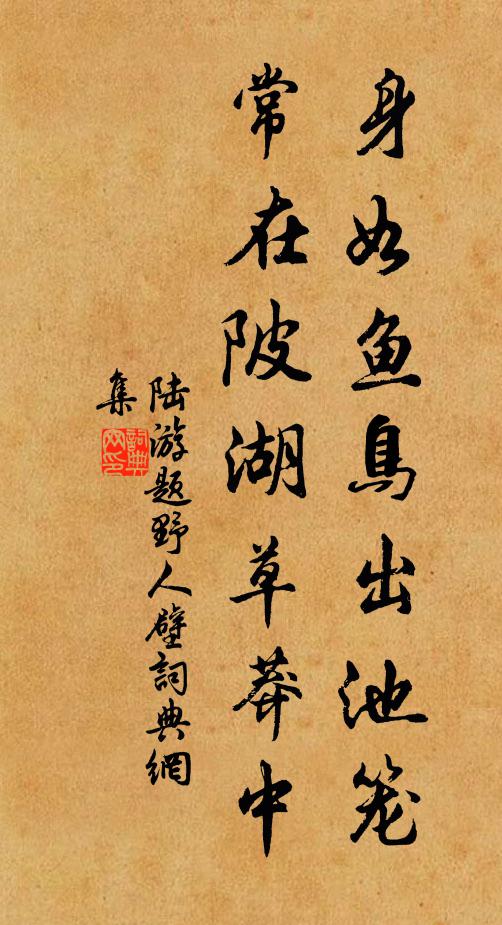 身如鱼鳥出池笼
常在陂湖草莽中
陆游题野人壁詞典網
集
詞典
网印